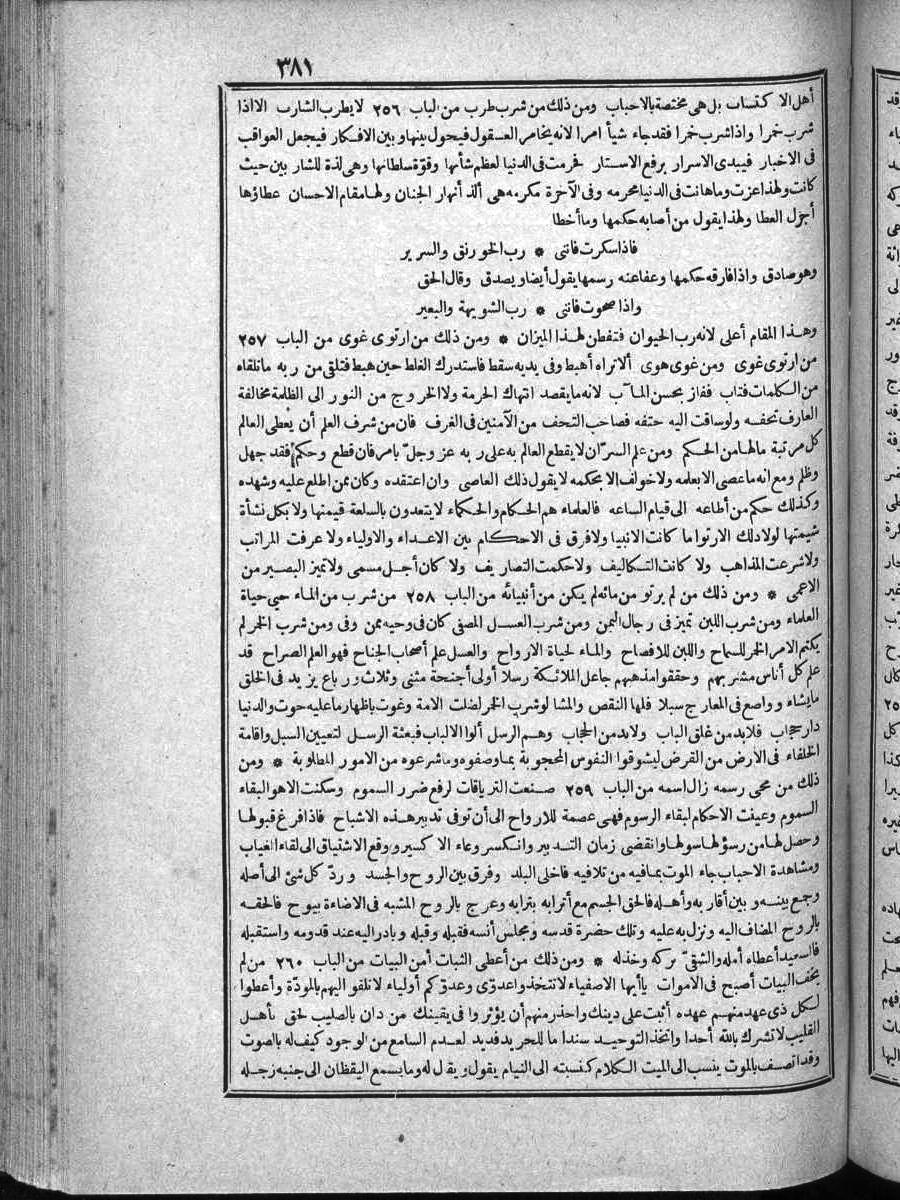 ٣٨١
أهل الا كتساب بل هى مختصة بالاحباب ومن ذلك من شرب طرب من الباب ٢٥٦ لا يطرب الشارب الا اذا
شرب خمرا واذا شرب خمرا فقد جاء شيأ امرا لانه يخامر العقول فيحول بينها وبين الافكار فيجعل العواقب
فى الاخبار فيبدى الاسرار برفع الاستار فحرمت فى الدنيا لعظم شأنها وقوة سلطانها وهى لذة للشار بين حيث
كانت ولهذا عزت وما هانت فى الدنيا محرمه وفى الآخرة مكرمه هى ألذ أنهار الجنان ولها مقام الاحسان عطاؤها
أجزل العطا ولهذا يقول من أصابه حكمها وما أخطا
فاذا سكرت فاننى * رب الخورنق والسرير
وهو صادق واذا فارقه حكمها وعفا عنه رسمها يقول أيضا ويصدق وقال الحق
واذا صحوت فاننى * رب الشويهة والبعير
وهذا المقام أعلى لانه رب الحيوان فتفطن لهذا الميزان * ومن ذلك من ارتوى غوى من الباب ٢٥٧
من ارتوى غوى ومن غوى هوى ألا تراه أهبط وفى يديه سقط فاستدرك الغلط حين هبط فتلقى من ربه ما تلقاه
من الكلمات فتاب ففاز بحسن المآب لانه ما يقصد انتهاك الحرمة ولا الخروج من النور الى الظلمة مخالفة
العارف تحفه ولو ساقت اليه حتفه فصاحب التحف من الآمنين فى الغرف فان من شرف العلم أن يعطى العالم
كل مرتبة ما لها من الحكم ومن علم السر ان لا يقطع العالم به على ربه عز وجل بامر فان قطع وحكم فقد جهل
وظلم ومع انه ما عصى الا بعلمه ولا خولف الا بحكمه لا يقول ذلك العاصى وان اعتقده وكان ممن اطلع عليه وشهده
وكذلك حكم من أطاعه الى قيام الساعه فالعلماء هم الحكام والحكماء لا يتعدون بالسلعة قيمتها ولا بكل نشأة
شيمتها لولا ذلك الارتوا ما كانت الانبيا ولا فرق فى الاحكام بين الاعداء والاولياء ولا عرفت المراتب
ولا شرعت المذاهب ولا كانت التكاليف ولا حكمت التصاريف ولا كان أجل مسمى ولا تميز البصير من
الاعمى * ومن ذلك من لم يرتو من مائه لم يكن من أنبيائه من الباب ٢٥٨ من شرب من الماء حيى حياة
العلماء ومن شرب اللبن تميز فى رجال اليمن ومن شرب العسل المصفى كان فى وحيه ممن وفى ومن شرب الخمر لم
يكتم الامر الخمر للسماح واللبن للافصاح والماء لحياة الارواح والعسل علم أصحاب الجناح فهو العلم الصراح قد
علم كل أناس مشربهم وحققوا مذهبهم جاعل الملائكة رسلا أولى أجنحة مثنى وثلاث ورباع يزيد فى الخلق
ما يشاء وواضع فى المعارج سبلا فلها النقص والمشا لو شرب الخمر لضلت الامة وغوت باظهار ما عليه حوت والدنيا
دار حجاب فلا بد من غلق الباب ولا بد من الحجاب وهم الرسل ألوا الالباب فبعثة الرسل لتعيين السبل واقامة
الخلفاء فى الارض من القرض ليشوقوا النفوس المحجوبة بما وصفوه وما شرعوه من الامور المطلوبة * ومن
ذلك من محى رسمه زال اسمه من الباب ٢٥٩ صنعت الترياقات لرفع ضرر السموم وسكنت الاهو البقاء
السموم وعينت الاحكام لبقاء الرسوم فهى عصمة للارواح الى أن توفى تدبير هذه الاشباح فاذا فرغ قبولها
وحصل لها من رسؤلها سولها وانقضى زمان التدبير وانكسر وعاء الاكسير ووقع الاشتياق الى لقاء الغياب
ومشاهدة الاحباب جاء الموت بما فيه من تلافيه فاخلى البلد وفرق بين الروح والجسد ورد كل شئ الى أصله
وجمع بينه وبين أقاربه وأهله فالحق الجسم مع أترابه بترابه وعرج بالروح المشبه فى الاضاءة بيوح فالحقه
بالروح المضاف اليه ونزل به عليه وتلك حضرة قدسه ومجلس أنسه فقبله وقبله وبادر اليه عند قدومه واستقبله
فالسعيد أعطاه أمله والشقى تركه وخذله * ومن ذلك من أعطى الثبات أمن البيات من الباب ٢٦٠ من لم
يخف البيات أصبح فى الاموات يا أيها الاصفياء لا تتخذوا عدوى وعدوكم أولياء لا تلقوا اليهم بالمودة وأعطوا
لكل ذى عهد منهم عهده أثبت على دينك واحذر منهم أن يؤثروا فى يقينك من دان بالصليب لحق باهل
القليب لا تشرك بالله أحدا واتخذ التوحيد سندا ما للحريد فديد لعدم السامع من الوجود كيف له بالصوت
وقد اتصف بالموت ينسب الى الميت الكلام كنسبته الى النيام يقول ويقل له وما يسمع اليقظان الى جنبه زجله